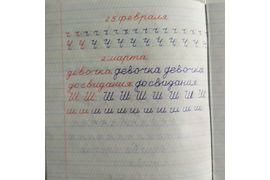 25 февраля
ч ч ч ч ч ч ч ч ч ч ч
Ч Ч Ч Ч Ч Ч Ч Ч Ч Ч Ч
2 марта
девочка девочка девочка
до свидания до свидания
Ш Ш Ш Ш Ш Ш Ш Ш
ш ш ш ш ш ш ш ш